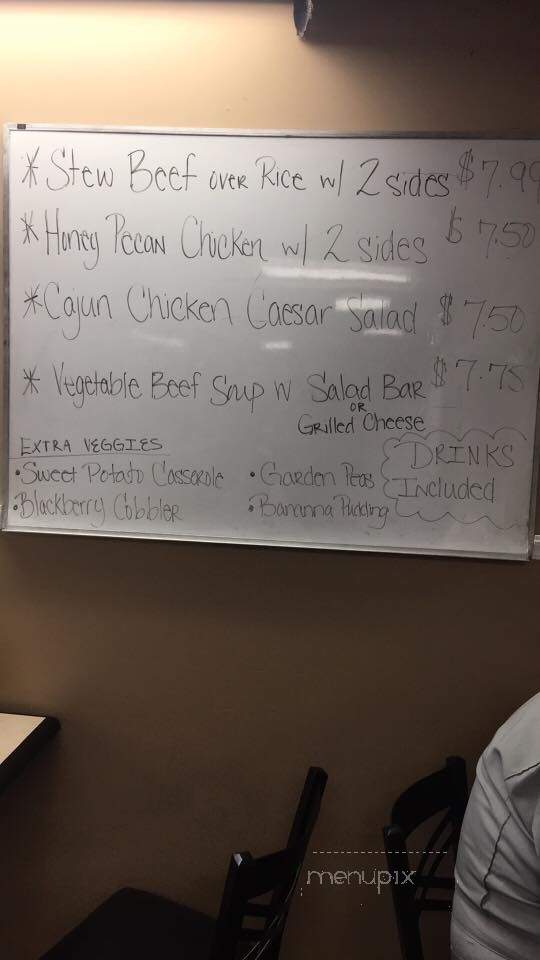 * Stew Beef over Rice w/ 2 sides $7.99
* Honey Pecan Chicken w/ 2 sides $7.50
* Cajun Chicken Caesar Salad $7.50
* Vegetable Beef Soup w Salad Bar $7.75
or
Grilled Cheese
Extra Veggies
• Sweet Potato Casserole
• Blackberry Cobbler
• Garden Peas
• Bananna Pudding
DRINKS
Included
menupix